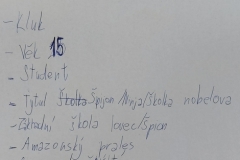 - Kluk
- Věk 15
- Student
- Tytul Školka Špion Ninja/školka nobelova
- Základní škola lovec/špion
- Amazonský prales